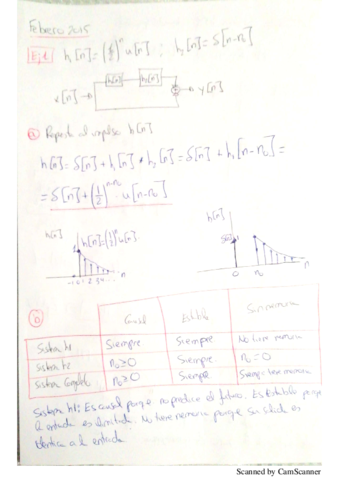 Febrero 2015
Ej 1 h₁[n] = (1/2)ⁿ u[n] ; h₂[n] = δ[n-n₀]
h₁[n] h₂[n]
x[n] y[n]
a) Respuesta al impulso h[n]
h[n] = δ[n] + h₁[n] * h₂[n] = δ[n] + h₁[n-n₀] =
= δ[n] + (1/2)ⁿ⁻ⁿ⁰ · u[n-n₀]
h[n] h[n] = (1/2)ⁿ u[n] h[n]
n 0 n₀ n
b) Causal Estable Sin memoria
Sistema h1 Siempre Siempre No tiene memoria
Sistema h2 n₀≥0 Siempre n₀=0
Sistema completo n₀≥0 Siempre tiene memoria
Sistema h1: Es causal porque no produce el futuro. Es Estable porque
la entrada es limitada. No tiene memoria porque su salida es
identica a la entrada.
Scanned by CamScanner